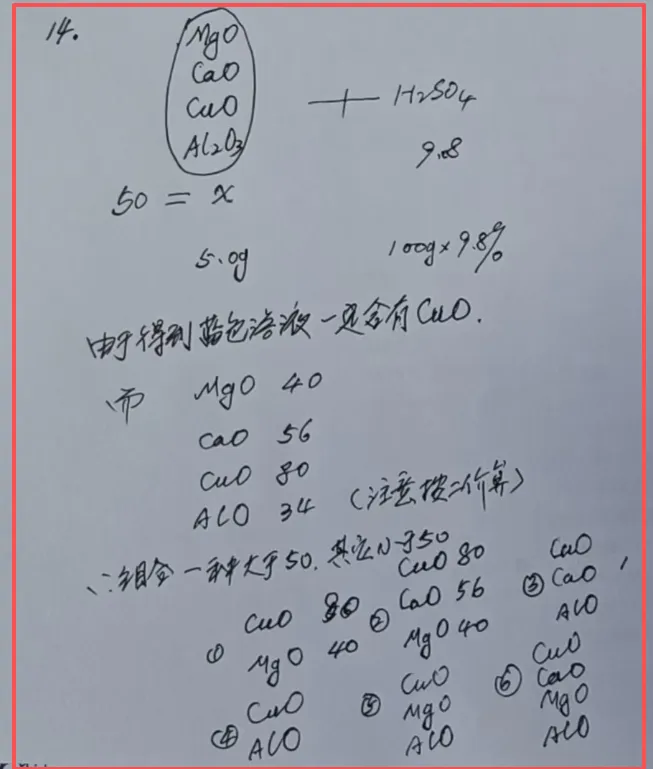 14.
MgO
CaO
CuO
Al2O3
+ H2SO4
9.8
50 = x
5.0g 100g×9.8%
由于得到蓝色溶液一定含有CuO.
而 MgO 40
CaO 56
CuO 80
AlO 34 (注意按二价算)
∴组合一种大于50.其它小于50
① CuO 80
MgO 40
② CuO 80
CaO 56
MgO 40
③ CuO
CaO
AlO
④ CuO
AlO
⑤ CuO
MgO
AlO
⑥ CuO
CaO
MgO
AlO